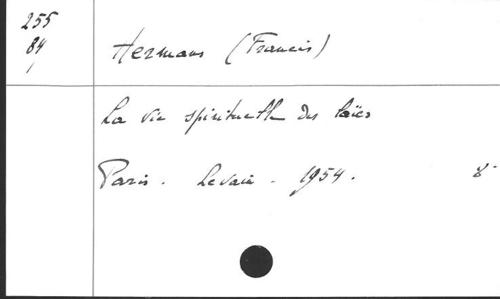 255
84
Hermans (Francis)
La vie spirituelle des laïcs
Paris. Levain. 1954. 8°